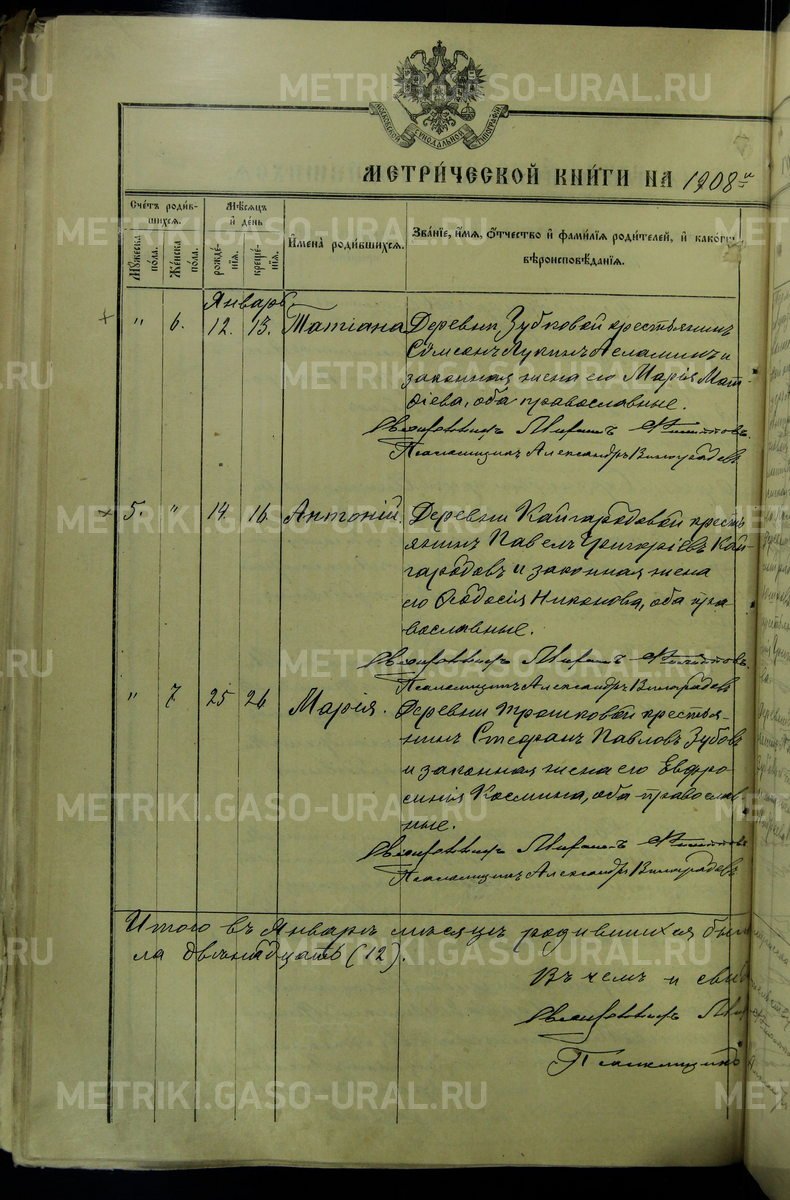 МОСКОВСКОЙ СѴНОДАЛЬНОЙ ТИПОГРАФІИ
МЕТРИ́ЧЕСКОЙ КНИ́ГИ НА 1908 й
Сче́тъ роди́в-
шихся.
Мѣ́сяцъ
и҆ де́нь
И҆мена̀ роди́вшихся.
Зва́нїе, и҆́мя, ѻ҆́тчество и҆ фами́лїя роди́телей, и҆ како́гѡ
вѣроисповѣ́данїя.
Мꙋ́жеска по́ла.
Же́нска по́ла.
рожде́нїя.
креще́нїя.
Январь
" 6. 12. 13. Татіана Деревни Зубковой крестьянинъ
Сѵмеонъ Лукинъ и
законная жена его Марія Мат-
ѳіева, оба православные.
Священникъ
Псаломщикъ Александръ Виноградовъ
5. " 14 16. Антоній. Деревни Кайгородовой кресть
янинъ Павелъ Григоріевъ Кай-
городовъ и законная жена
его Ѳеодосія Никонова, оба пра-
вославные.
Священникъ
Псаломщикъ Александръ Виноградовъ
" 7 25 26 Марія. Деревни Трошковой крестья-
нинъ Стефанъ Павловъ Зубовъ
и законная жена его Евфро
синія Космина, оба православ
ные.
Священникъ
Псаломщикъ Александръ Виноградовъ
Итого въ Январѣ мѣсяцѣ родившихся бы
ло двѣнадцать (12).
Въ чемъ и сви
Священникъ
Псаломщикъ
METRIKI.GASO-URAL.RU